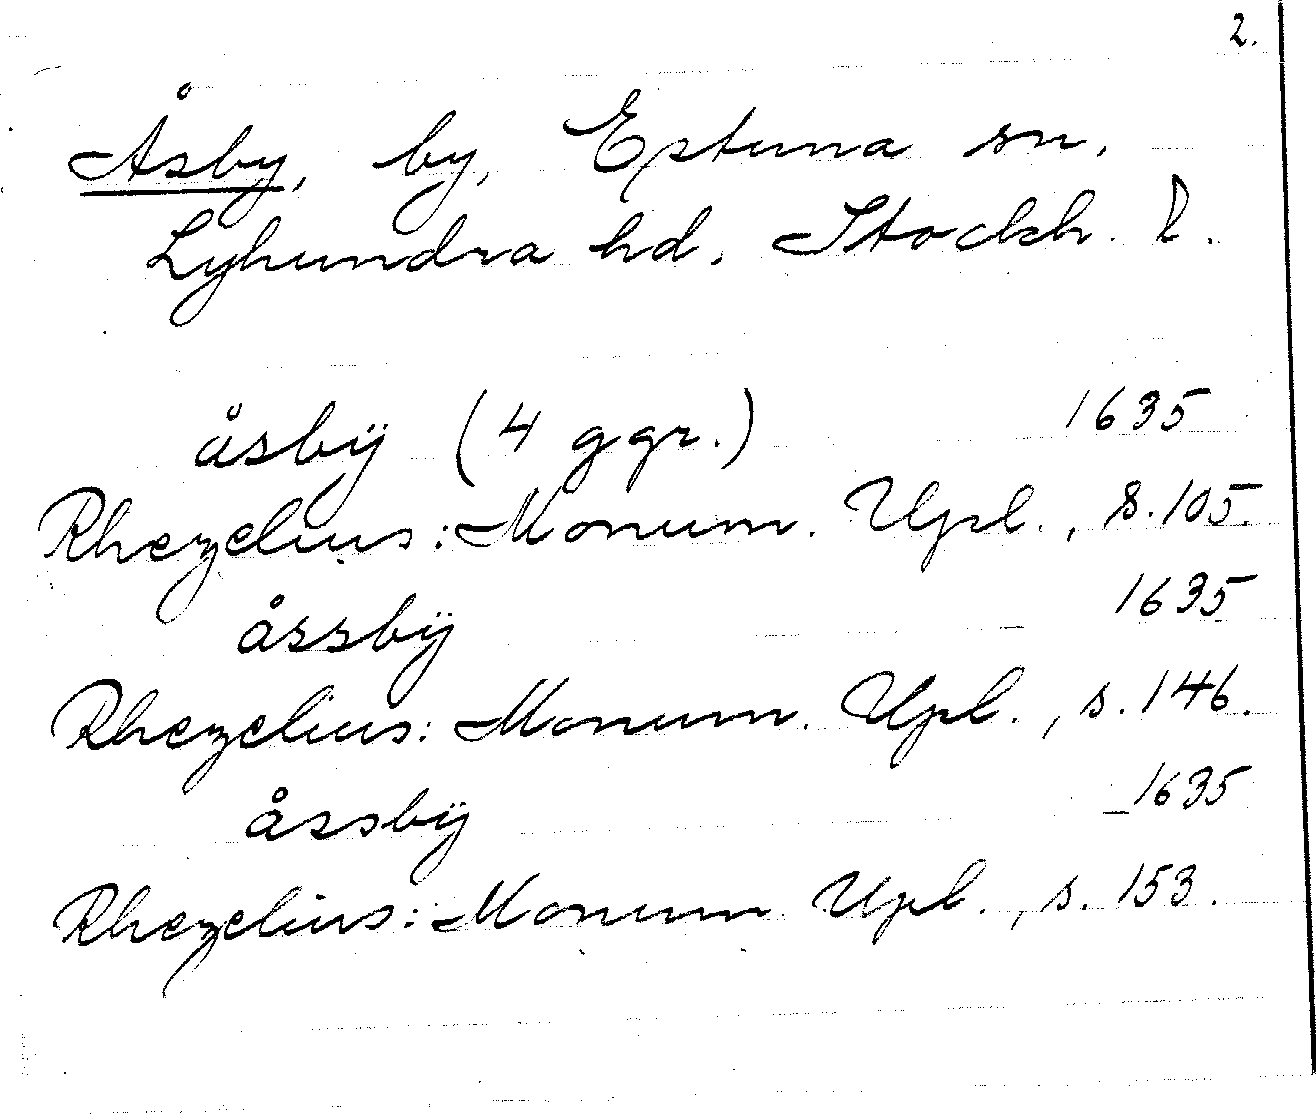 2.
Åsby, by, Estuna sn,
Lyhundra hd, Stockh. l.
åsbÿ (4 ggr.) 1635
Rhezelius: Monum. Upl., s. 105.
åssbÿ 1635
Rhezelius: Monum. Upl., s. 146.
åssbÿ 1635
Rhezelius: Monum Upl., s. 153.